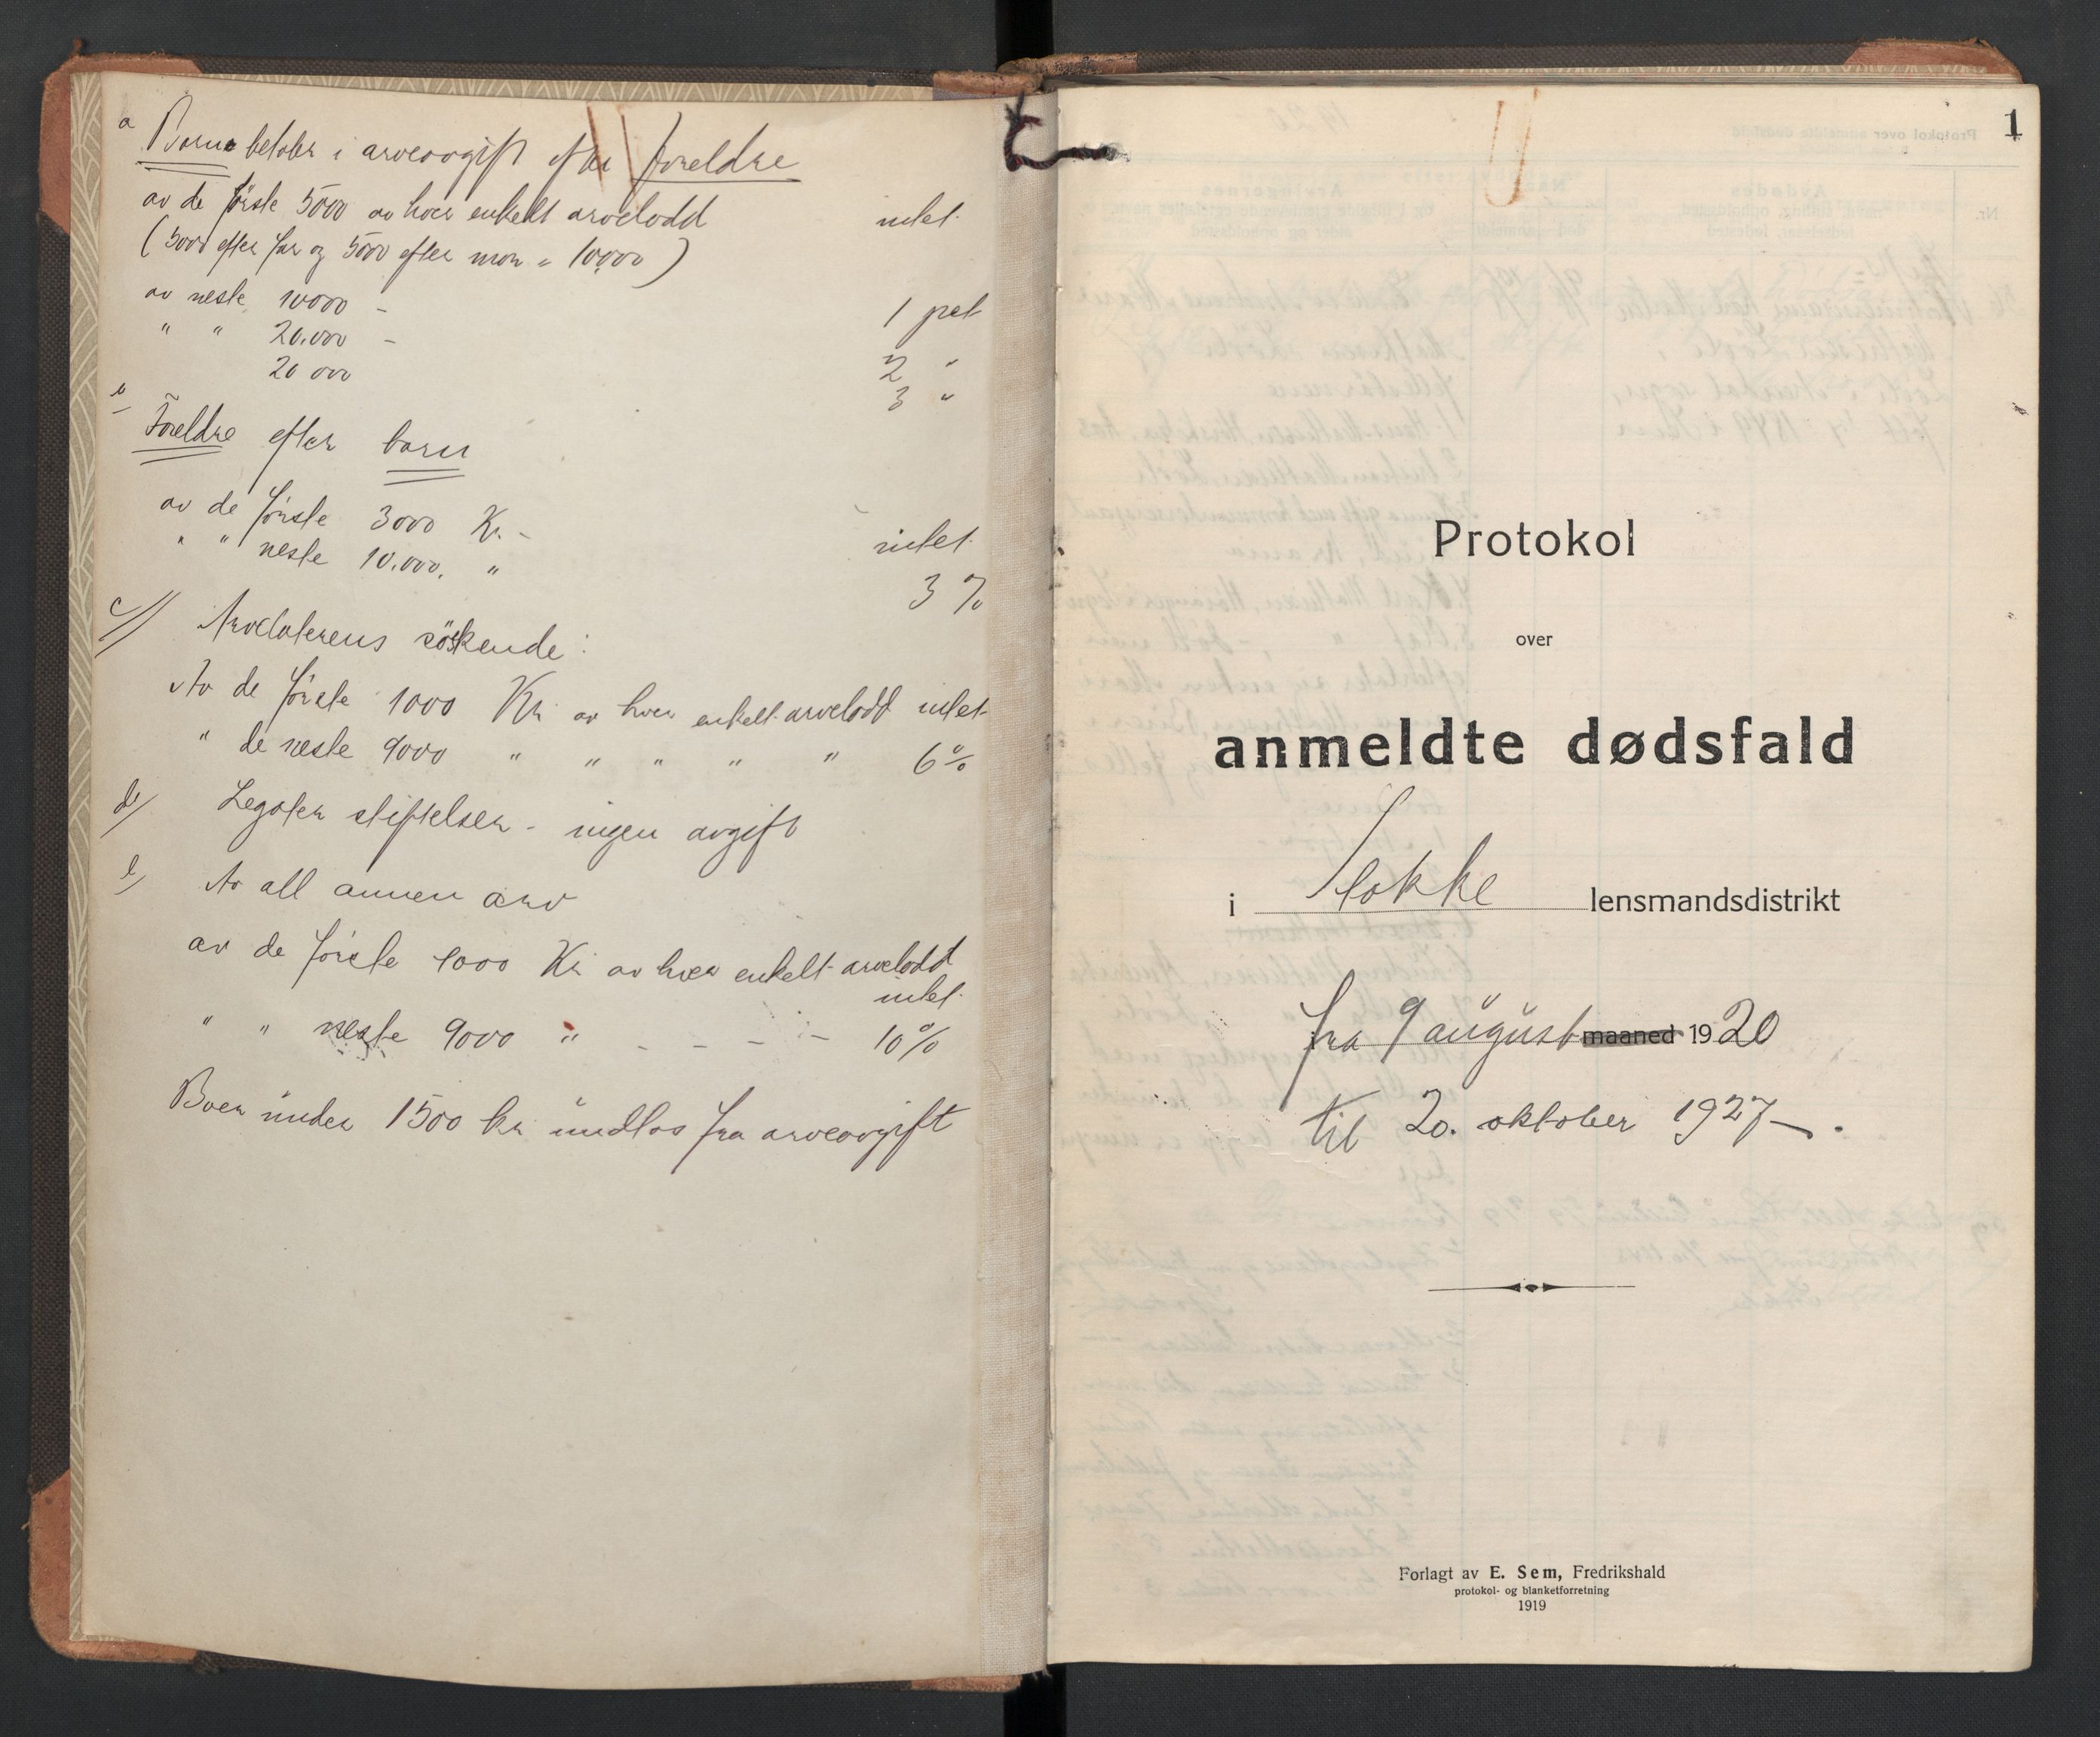 a Barn betaler i arveavgift efter foreldre
av de første 5000 av hver enkelt arvelodd intet
(5000 efter far og 5000 efter mor = 10000)
av neste 10000 - 1 pct
" " 20.000 - 2 "
20 000 3 "
b Foreldre efter barn
av de første 3000 Kr. - intet
" " neste 10.000. " 3 %
c/ Arvelaterens søskende:
Av de første 1000 Kr av hver enkelt arvelodd intet
" de neste 9000 " " " " " 6 %
d/ Legater stiftelser - ingen avgift
e/ Av all annen arv
av de første 1000 Kr av hver enkelt arvelodd
intet
" " neste 9000 " - - - - 10 %
Boer under 1500 kr undlas fra arveavgift
1
Protokol
over
anmeldte dødsfald
i Stokke lensmandsdistrikt
fra 9 august maaned 1920
til 20. oktober 1927 - .
Forlagt av E. Sem, Fredrikshald
protokol- og blanketforretning
1919